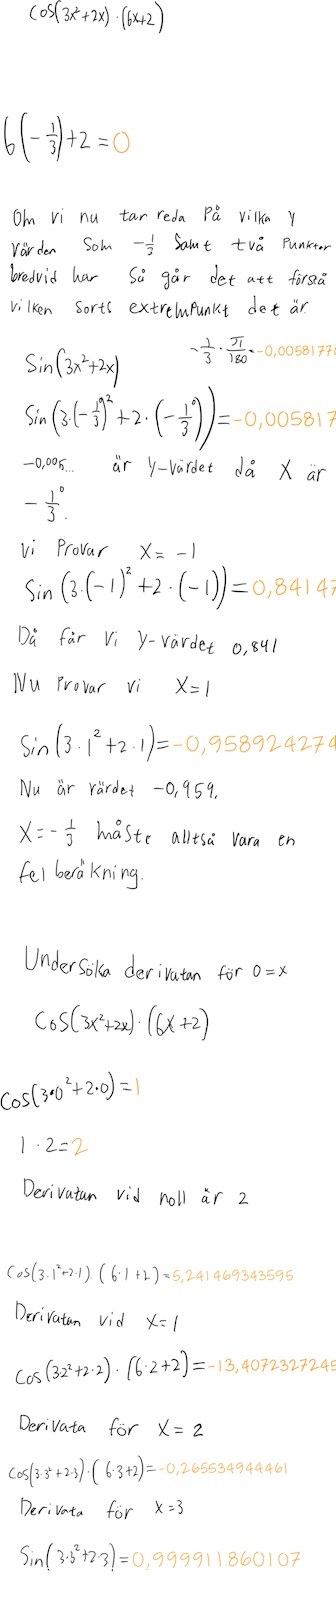 cos(3x²+2x)·(6x+2)
6(-1/3)+2=0
Om vi nu tar reda på vilka y
värden som -1/3 samt två punkter
bredvid har så går det att förstå
vilken sorts extrempunkt det är.
-1/3·π/180=-0,00581776
Sin(3x²+2x)
Sin(3·(-1/3°)²+2·(-1/3°))=-0,005817
-0,005... är y-värdet då x är
-1/3°.
Vi provar x=-1
Sin(3·(-1)²+2·(-1))=0,84147
Då får vi y-värdet 0,841
Nu provar vi x=1
Sin(3·1²+2·1)=-0,958924274
Nu är värdet -0,959.
x=-1/3 måste alltså vara en
felberäkning.
Undersöka derivatan för 0=x
cos(3x²+2x)·(6x+2)
cos(3·0²+2·0)=1
1·2=2
Derivatan vid noll är 2
cos(3·1²+2·1)·(6·1+2)=5,241469343595
Derivatan vid x=1
cos(32²+2·2)·(6·2+2)=-13,4072327245
Derivata för x=2
cos(3·3²+2·3)·(6·3+2)=-0,265534944461
Derivata för x=3
Sin(3·3²+2·3)=0,999911860107